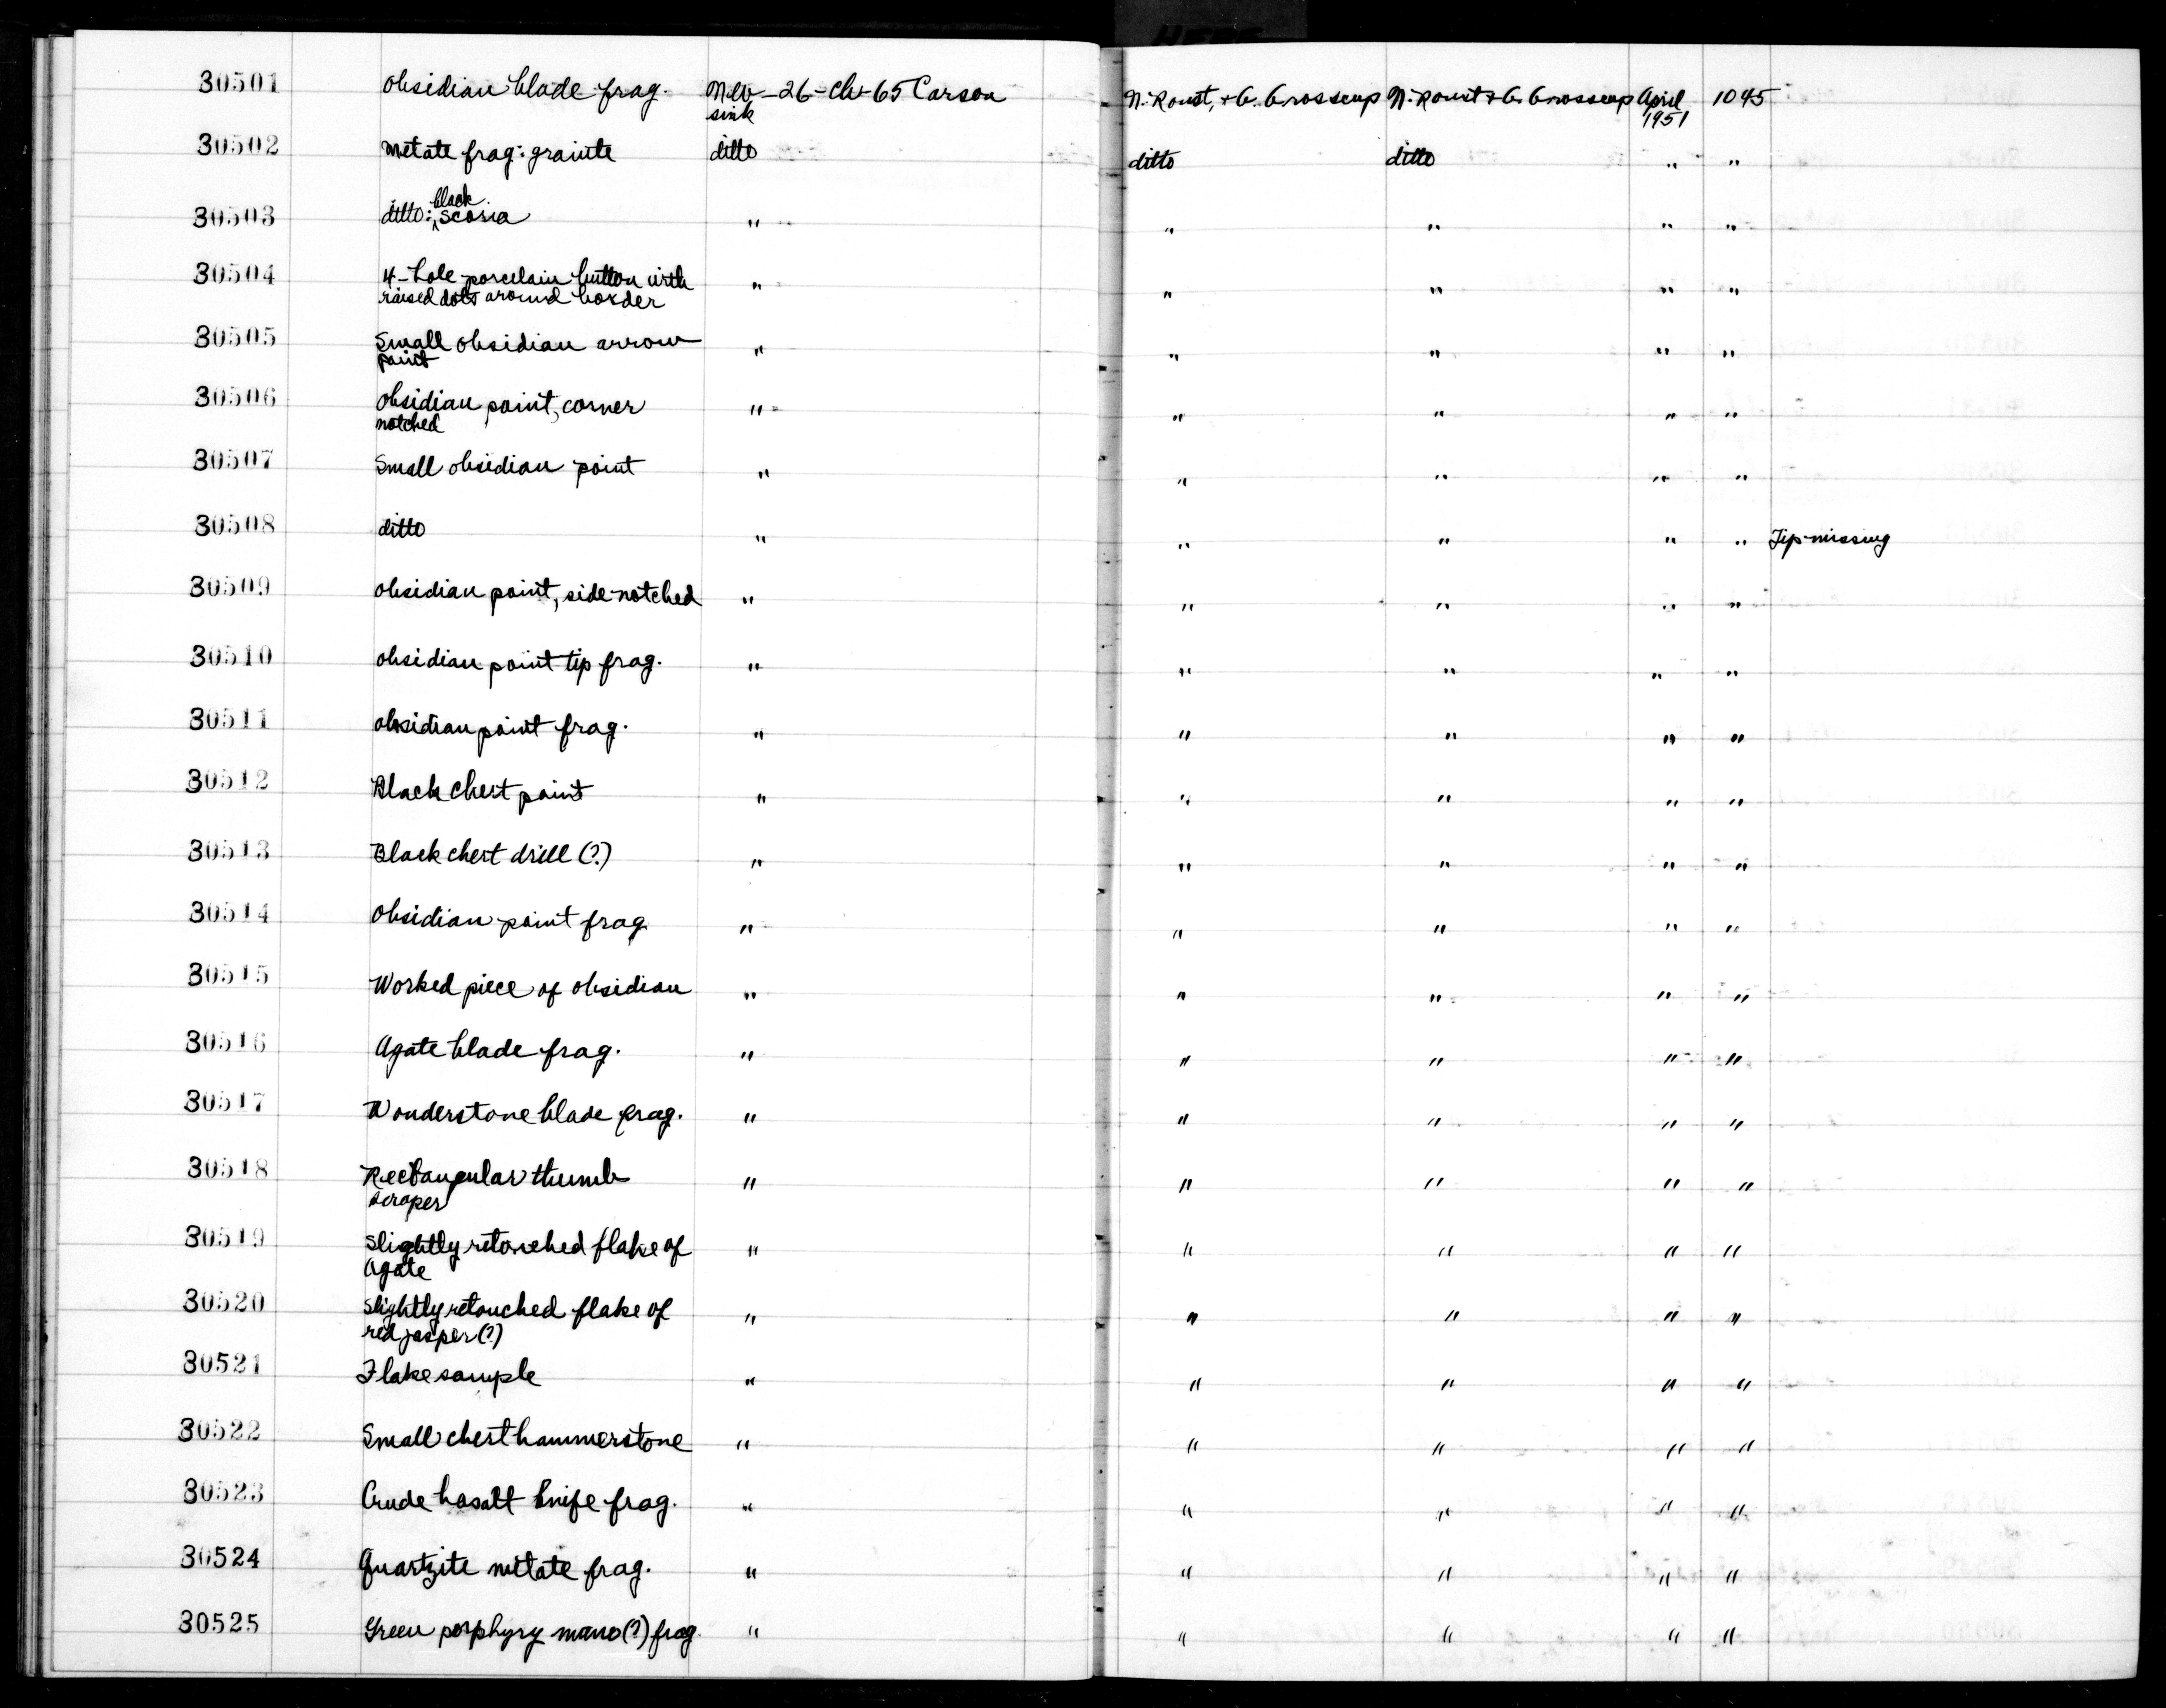 HERE
30501 Obsidian blade frag. Nev-26-Ch-65 Carson N. Roust, + G. Grosscup N. Roust + G. Grosscup April 1045
sink 1951
30502 Metate frag: grainte ditto ditto ditto " "
30503 ditto: black scoria " " " " "
30504 4-hole porcelain button with " " " " "
raised dots around border
30505 Small obsidian arrow " " " " "
point
30506 Obsidian point, corner " " " " "
notched
30507 Small obsidian point " " " " "
30508 ditto " " " " " Tip missing
30509 Obsidian point, side-notched " " " " "
30510 Obsidian point tip frag. " " " " "
30511 Obsidian point frag. " " " " "
30512 Black chert point " " " " "
30513 Black chert drill (?) " " " " "
30514 Obsidian point frag " " " " "
30515 Worked piece of obsidian " " " " "
30516 Agate blade frag. " " " " "
30517 Wonderstone blade frag. " " " " "
30518 Rectangular thumb " " " " "
scraper
30519 Slightly retouched flake of " " " " "
Agate
30520 Slightly retouched flake of " " " " "
red jasper (?)
30521 Flake sample " " " " "
30522 Small chert hammerstone " " " " "
30523 Crude basalt knife frag. " " " " "
30524 Quartzite metate frag. " " " " "
30525 Green porphyry mano (?) frag. " " " " "